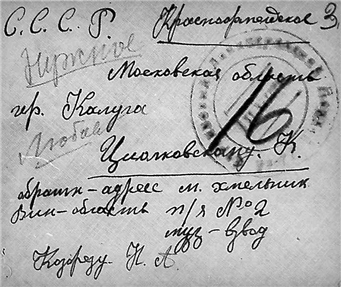 С. С. С. Р. Красноармейское 3
Нужное
Московская область
гор. Калуга
Любав
16
Циолковскому. К.
обратн-адрес м. хмельник
Вин-область п/я № 2
муз-взвод
Козореду. Н. А.